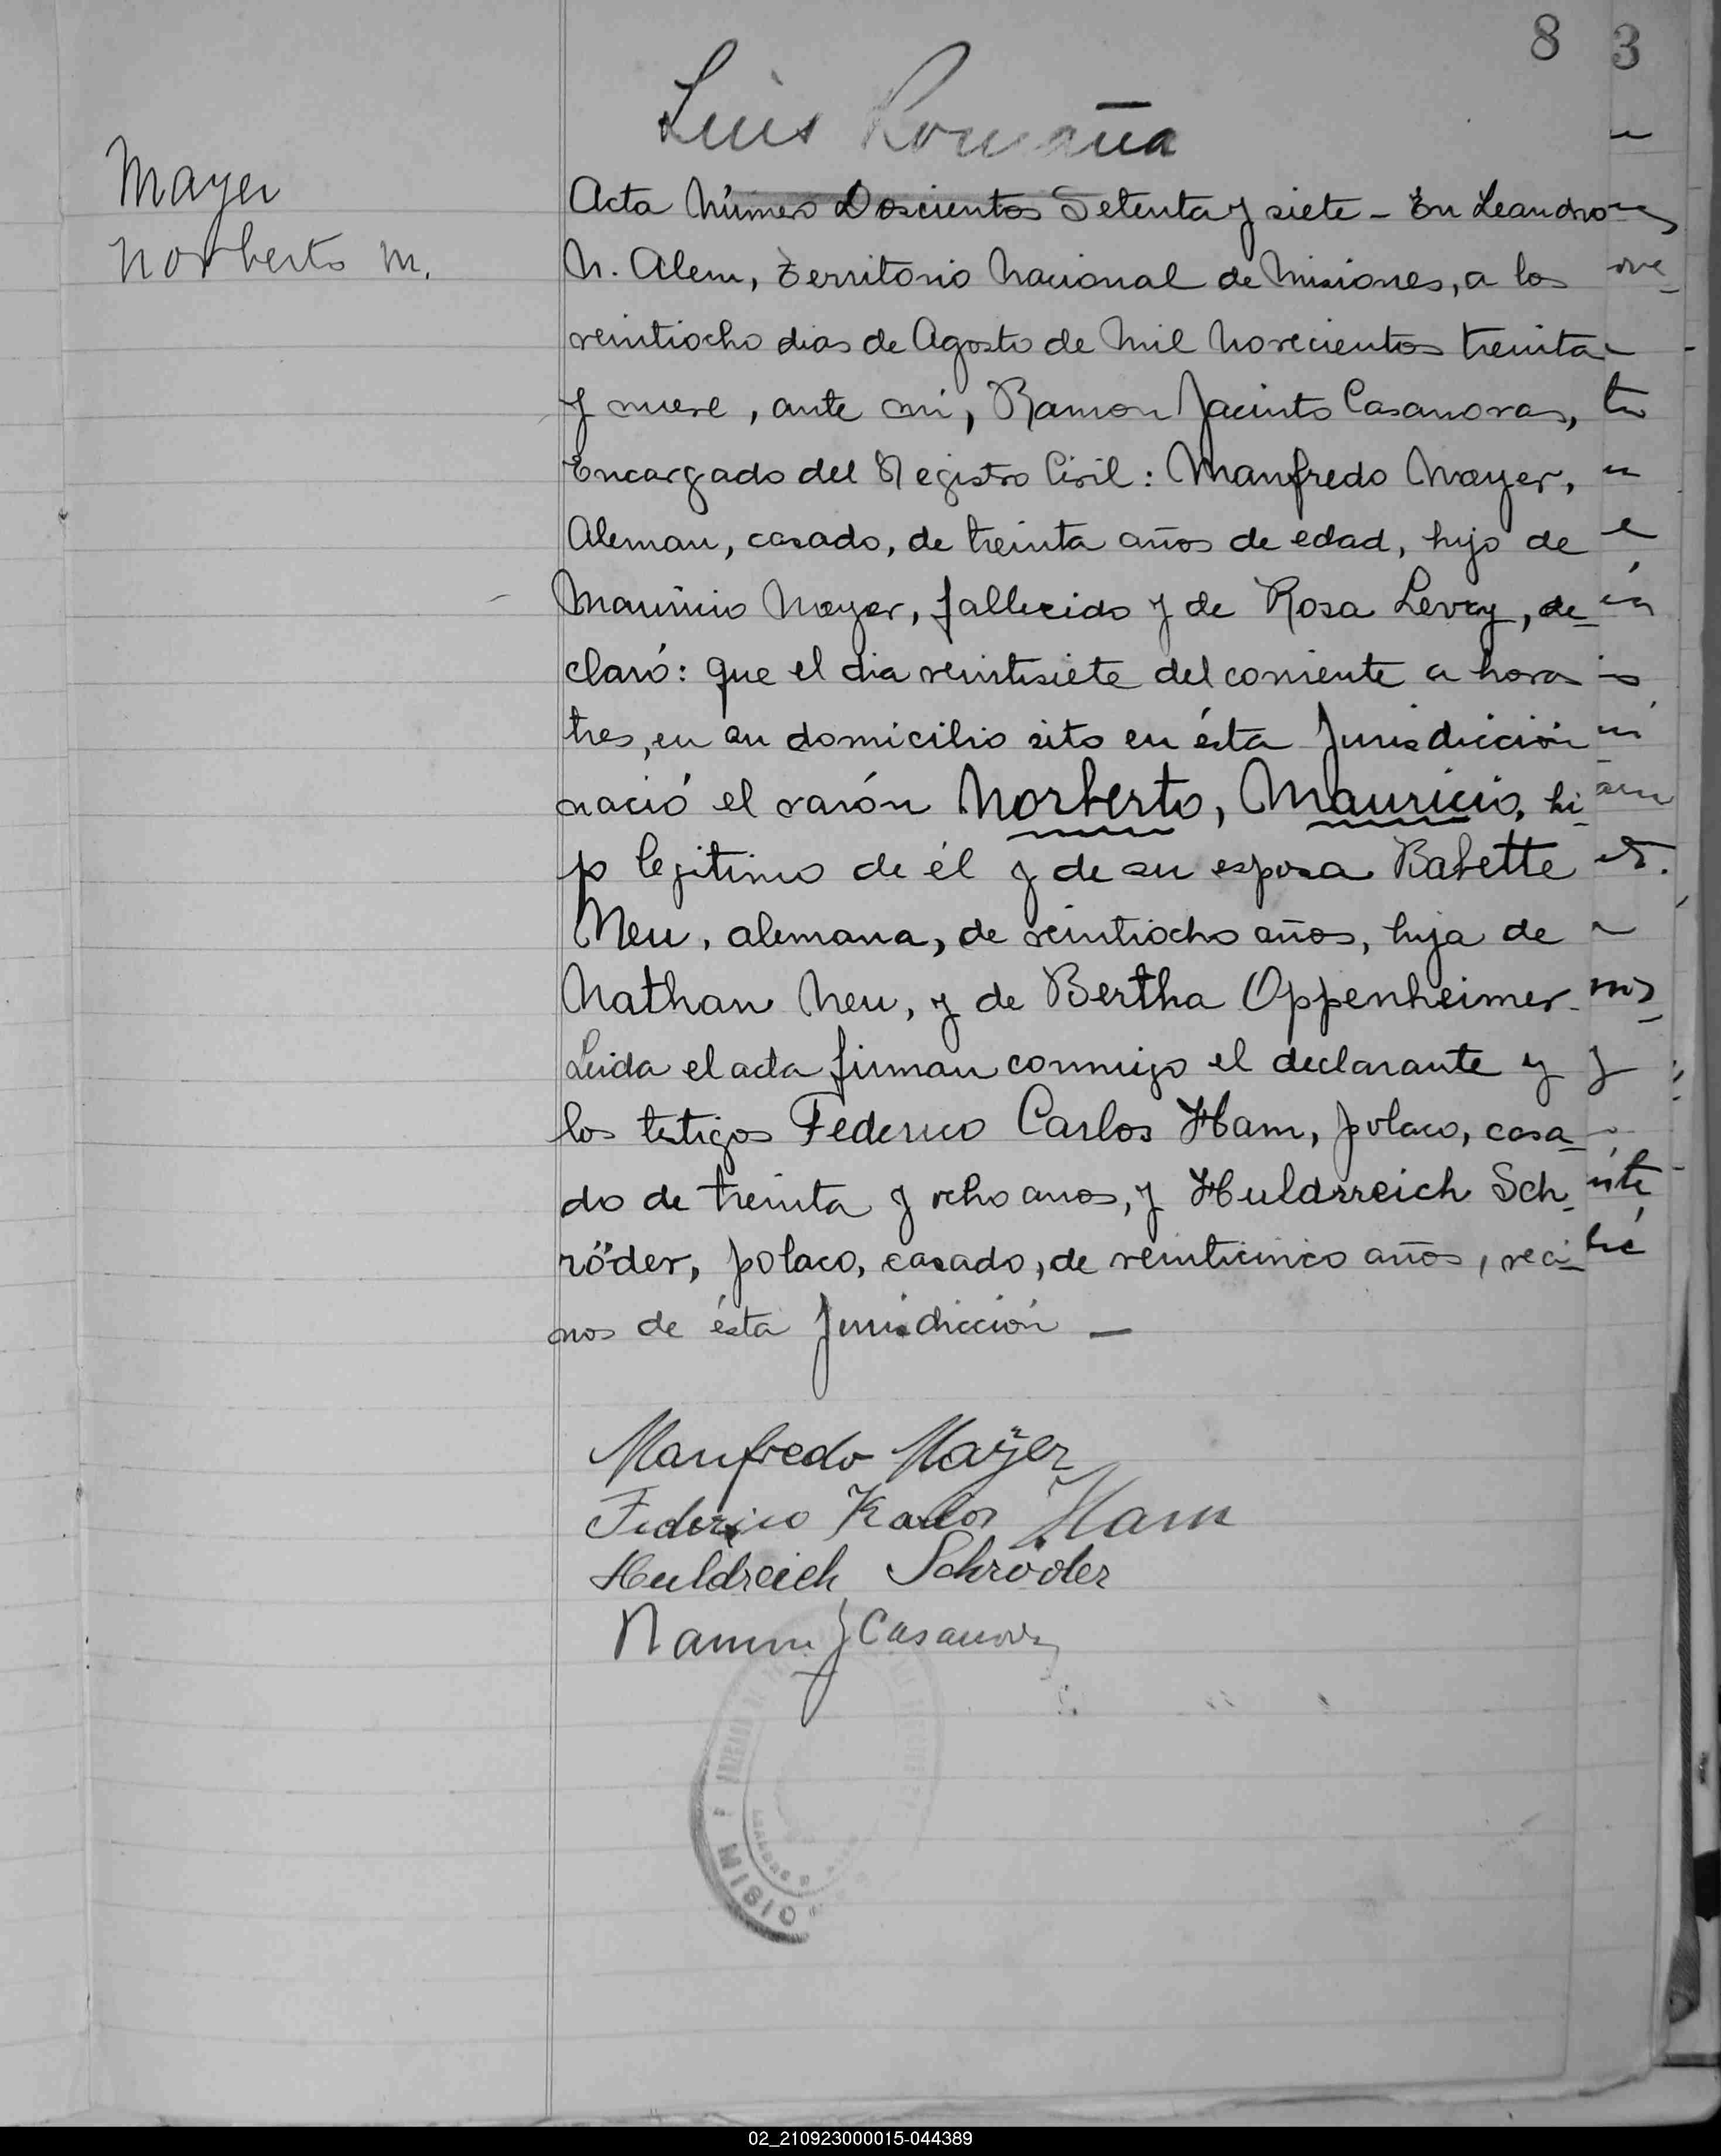 8 3
Luis Romaña
Mayer
Norberto M.
Acta Número Doscientos Setenta y siete - En Leandro
N. Alem, Territorio Nacional de Misiones, a los
veintiocho dias de Agosto de Mil Novecientos treinta
y nueve, ante mi, Ramon Jacinto Casanovas,
Encargado del Registro Civil: Manfredo Mayer,
Aleman, casado, de treinta años de edad, hijo de
Mauricio Mayer, fallecido y de Rosa Levy, de=
claró: Que el dia veintisiete del corriente a horas
tres, en su domicilio sito en ésta Jurisdicción
nació el varón Norberto, Mauricio, hi=
jo legitimo de él y de su esposa Babette
Neu, alemana, de veintiocho años, hija de
Nathan Neu, y de Bertha Oppenheimer.
Leida el acta firman conmigo el declarante y
los testigos Federico Carlos Ham, polaco, casa=
do de treinta y ocho anos, y Huldrreich Sch=
röder, polaco, casado, de veinticinco años, veci=
nos de ésta Jurisdicción —
Manfredo Mayer
Federico Karlos Ham
Huldreich Schröder
Ramon J Casanovas
MISIO
02_210923000015-044389